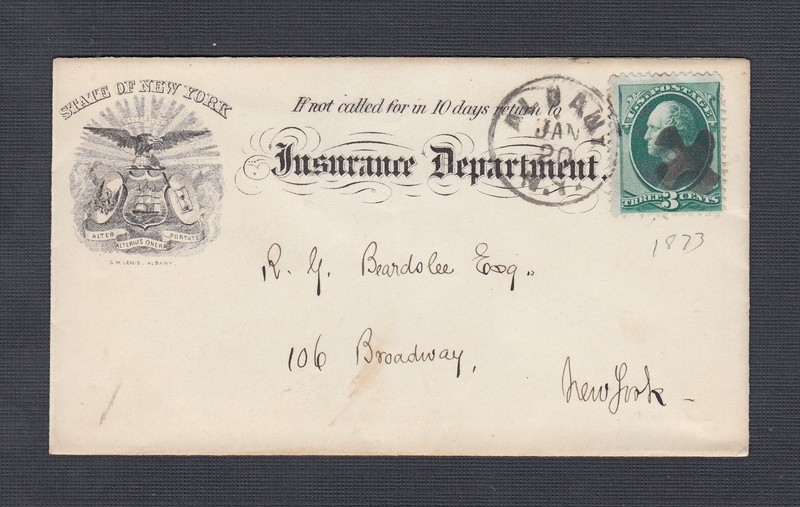 STATE OF NEW YORK
If not called for in 10 days return to
Insurance Department.
ALBANY
JAN
20
N.Y.
U.S. POSTAGE
THREE 3 CENTS
1873
ALTER ALTERIUS ONERA PORTATE
G.W. LEWIS, ALBANY.
R. G. Beardslee Esq.
106 Broadway,
New York